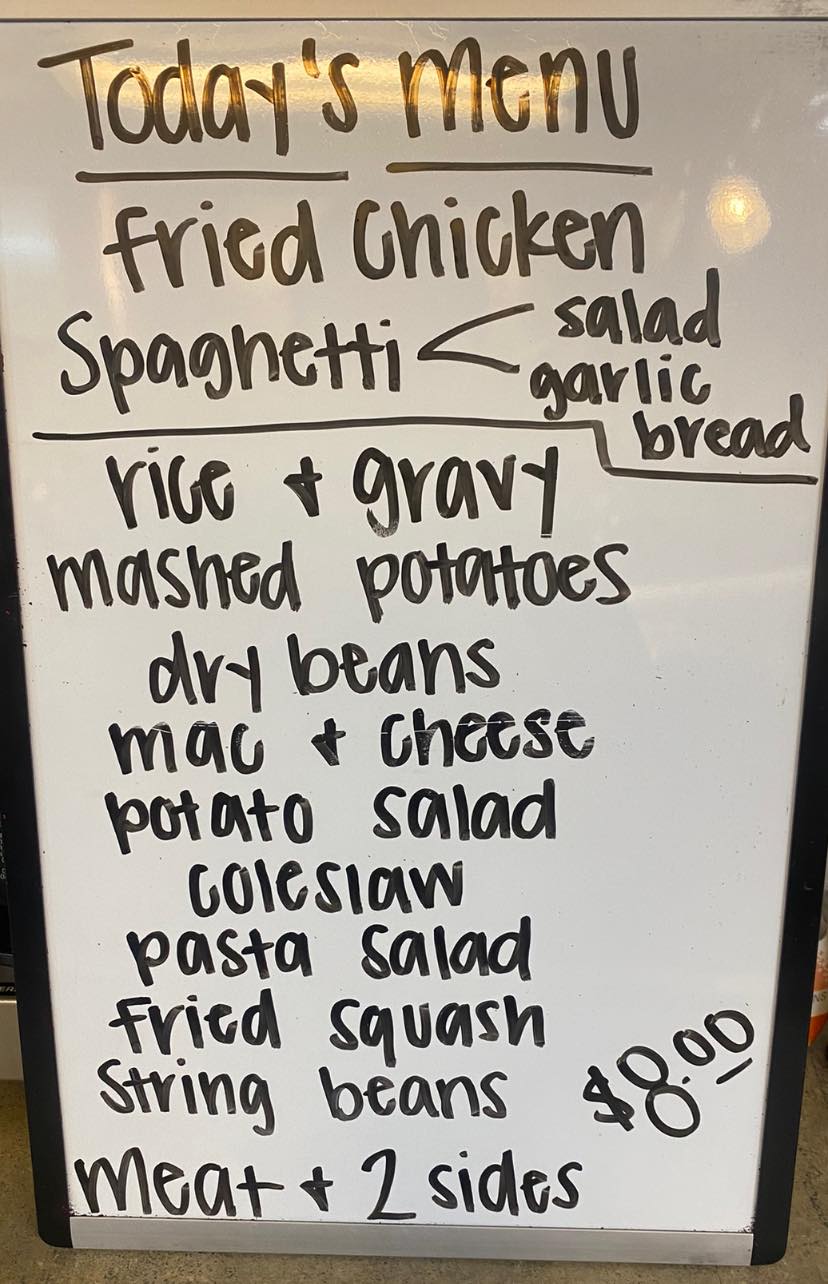 Today's Menu
fried Chicken
Spaghetti < salad
garlic
bread
rice + gravy
mashed potatoes
dry beans
mac + cheese
potato salad
coleslaw
pasta salad
fried squash
String beans
$8.00
Meat + 2 sides